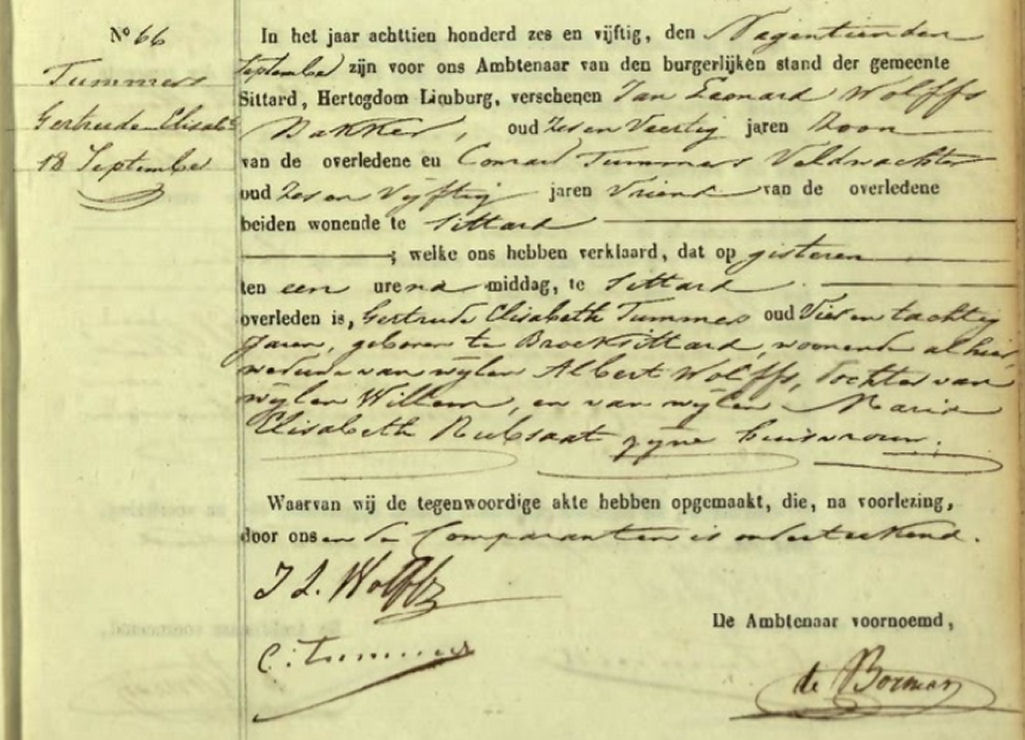 N° 66
Tummers
Gertrude Elisabeth
18 September
In het jaar achttien honderd zes en vijftig, den Negentienden
September zijn voor ons Ambtenaar van den burgerlijken stand der gemeente
Sittard, Hertogdom Limburg, verschenen Jan Leonard Wolffs
Bakker, oud Zes en Veertig jaren Zoon
van de overledene en Conrad Tummers Veldwachter
oud Zes en Vijftig jaren Vriend van de overledene
beiden wonende te Sittard
; welke ons hebben verklaard, dat op gisteren
ten een ure na middag, te Sittard
overleden is, Gertrude Elisabeth Tummers oud Vier en tachtig
Jaren, geboren te Broeksittard, woonende alhier,
weduwe van wijlen Albert Wolffs, Dochter van
wijlen Willem, en van wijlen Maria
Elisabeth Rubsaat zijne huisvrouw.
Waarvan wij de tegenwoordige akte hebben opgemaakt, die, na voorlezing,
door ons en de Comparanten is onderteekend.
J L. Wolffs
C: Tummers
De Ambtenaar voornoemd,
de Borman